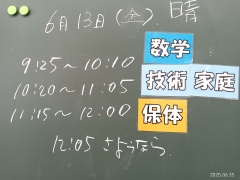 6月13日(金) 晴
9:25～10:10 数学
10:20～11:05 技術 家庭
11:15～12:00 保体
12:05 さようなら.
2025.06.13